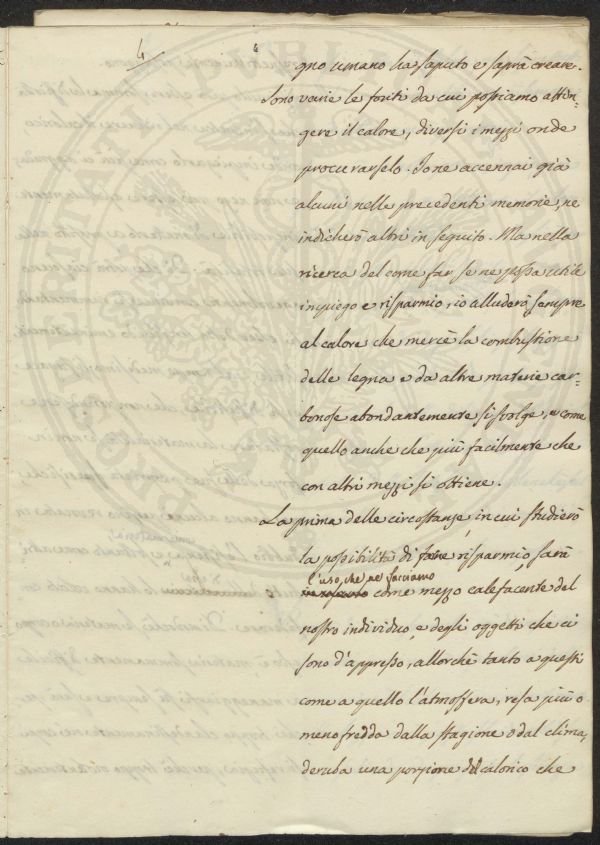 4
4
gno umano ha saputo e saprà creare.
Sono varie le fonti da cui possiamo attin-
gere il calore, diversi i mezzi onde
procurarselo. Io ne accennai già
alcuni nelle precedenti memorie, ne
indicherò altri in seguito. Ma nella
ricerca del come far se ne possa utile
impiego e risparmio, io alluderò sempre
al calore che mercè la combustione
delle legna e da altre materie car-
bonose abondantemente si svolge, come
quello anche che più facilmente che
con altri mezzi si ottiene.
La prima delle circostanze in cui studierò
la possibilità di fare risparmio, sarà
l'uso, che ne facciamo
come mezzo calefacente del
nostro individuo e degli oggetti che ci
sono d'appresso, allorchè tanto a questi
come a quello l'atmosfera, resa più o
meno fredda dalla stagione o dal clima,
deruba una porzione del calorico che